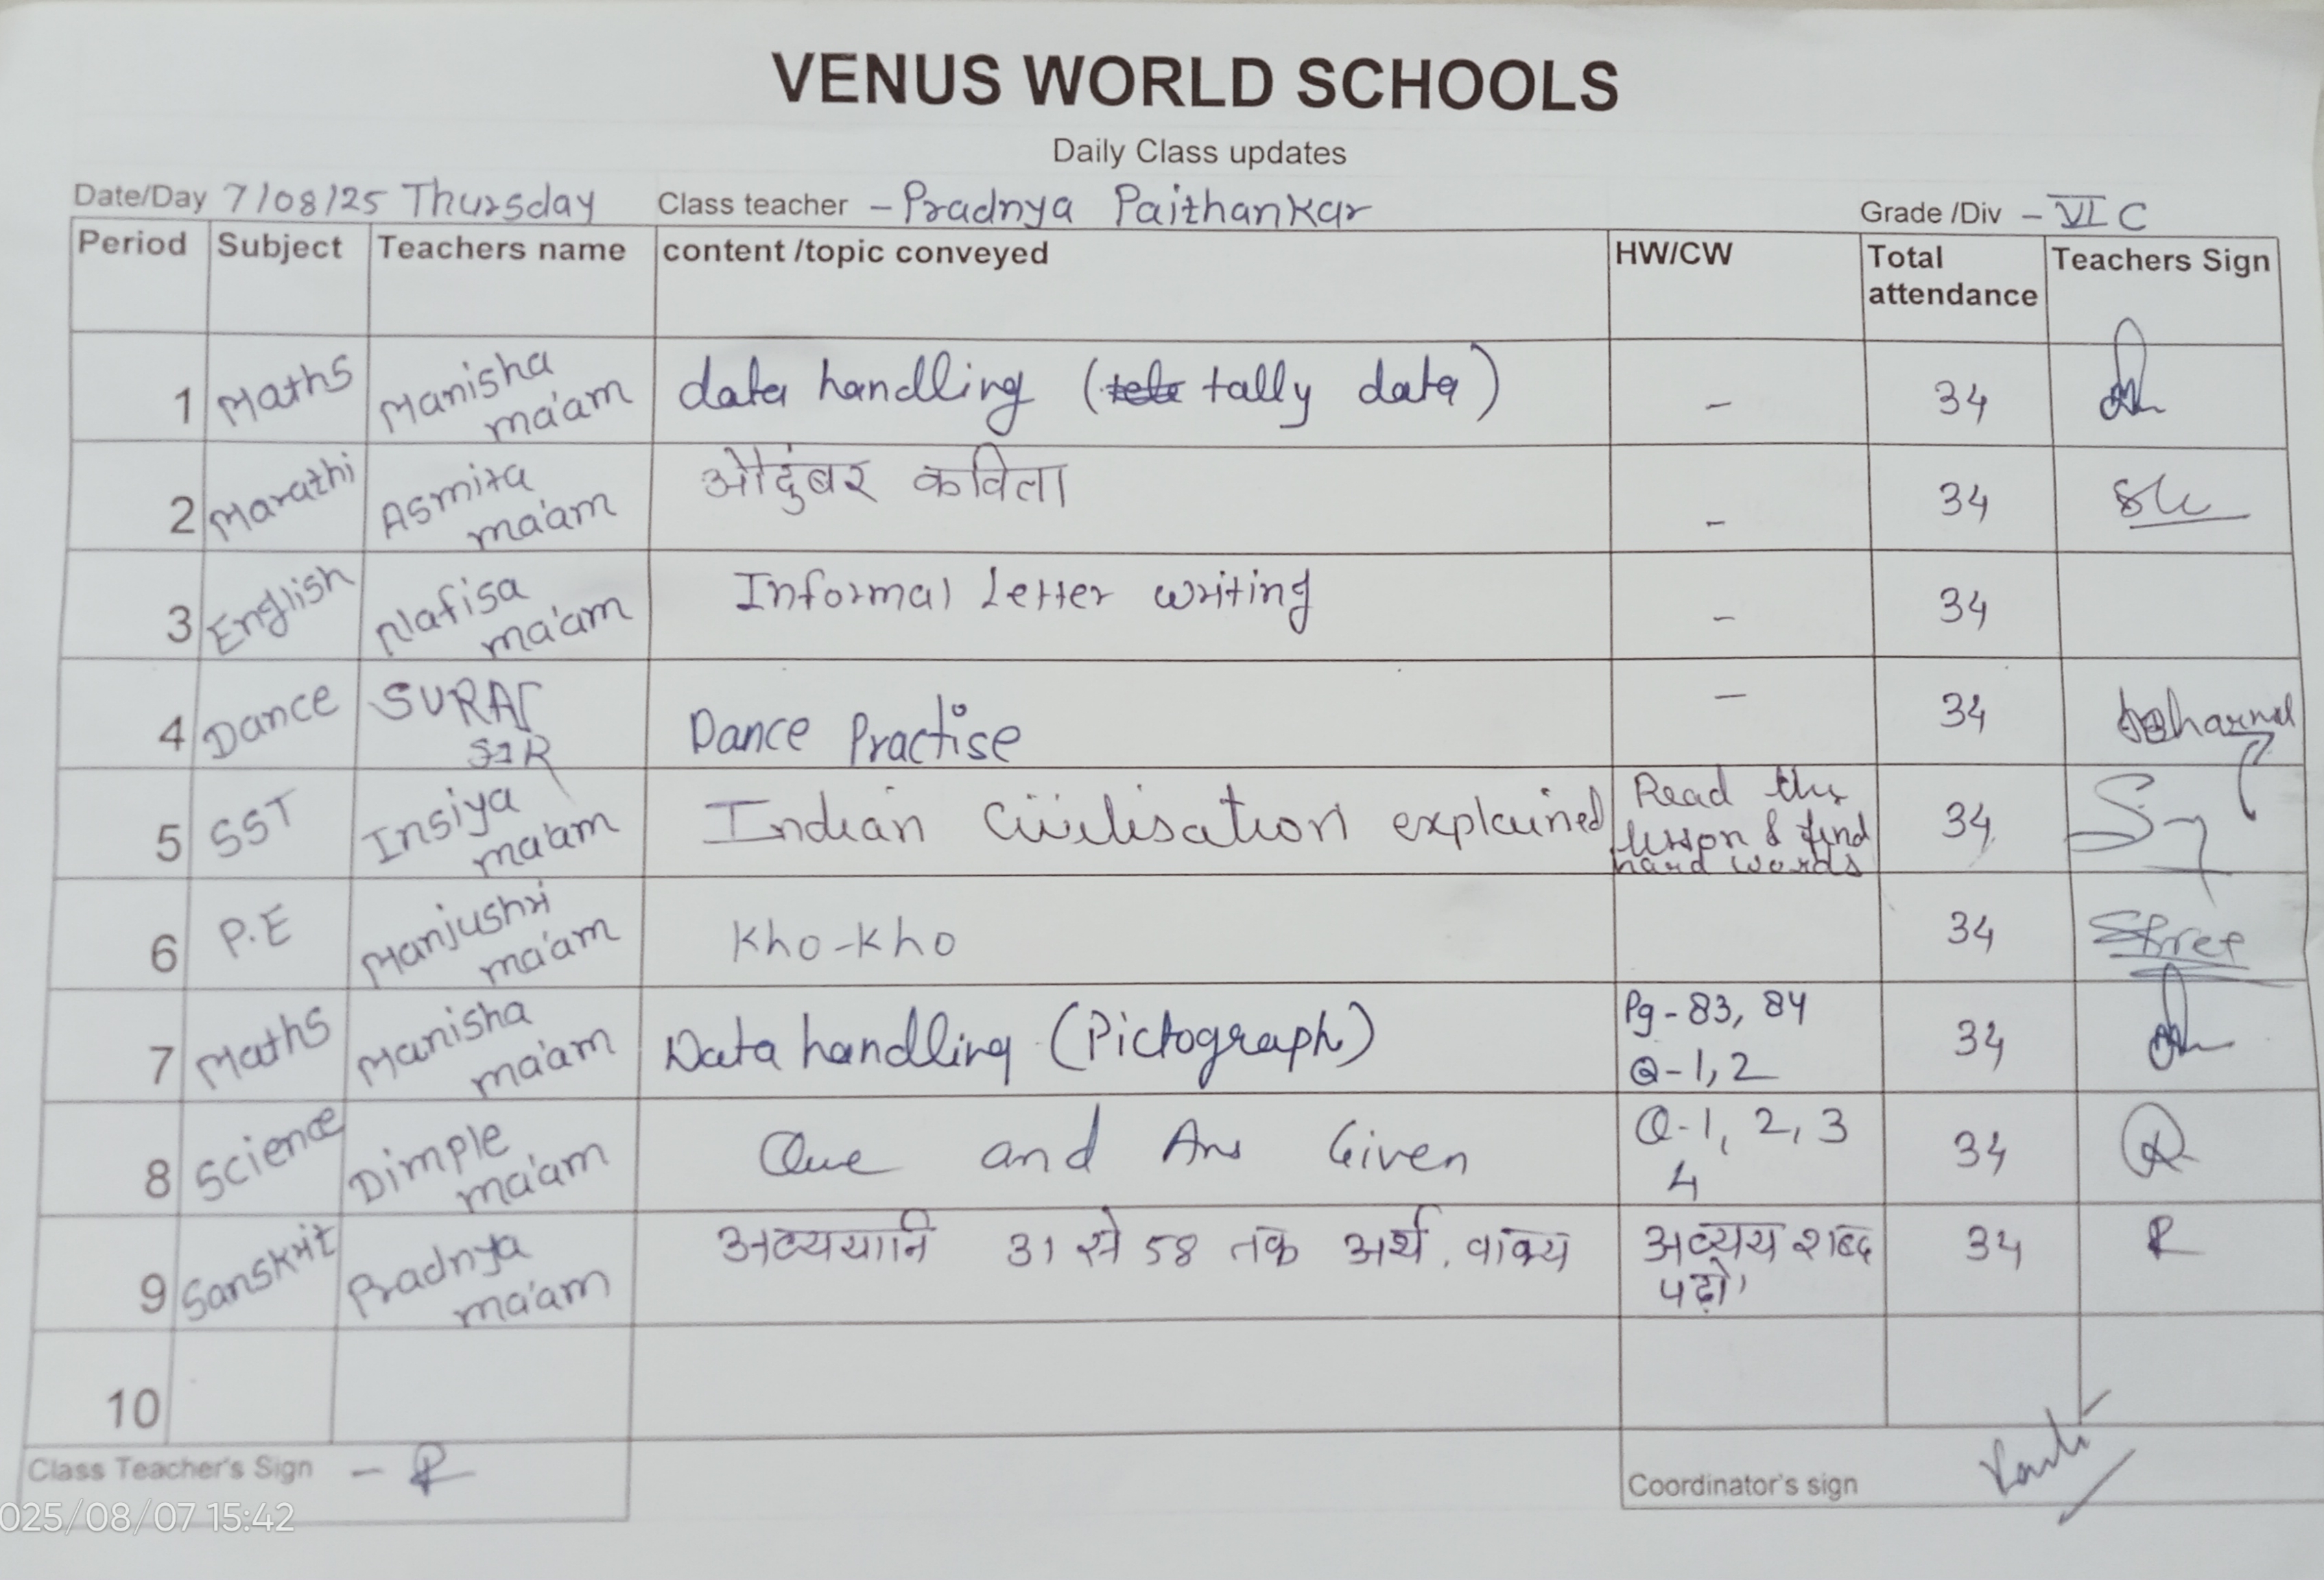 VENUS WORLD SCHOOLS
Daily Class updates
Date/Day 7/08/25 Thursday Class teacher - Pradnya Paithankar Grade /Div - VI C
Period Subject Teachers name content /topic conveyed HW/CW Total attendance Teachers Sign
1 Maths Manisha ma'am data handling (tally data) - 34
2 Marathi Asmita ma'am औदुंबर कविता - 34
3 English Nafisa ma'am Informal Letter writing - 34
4 Dance SURAJ SIR Dance Practise - 34
5 SST Insiya ma'am Indian Civilisation explained Read the lesson & find hard words 34
6 P.E Manjushri ma'am Kho-Kho 34
7 Maths Manisha ma'am Data handling (Pictograph) Pg-83, 84 Q-1,2 34
8 Science Dimple ma'am Que and Ans Given Q-1, 2, 3 4 34
9 Sanskrit Pradnya ma'am अव्ययानि 31 से 58 तक अर्थ, वाक्य अव्यय शब्द पढ़ो। 34 P
10
Class Teacher's Sign - P Coordinator's sign
025/08/07 15:42